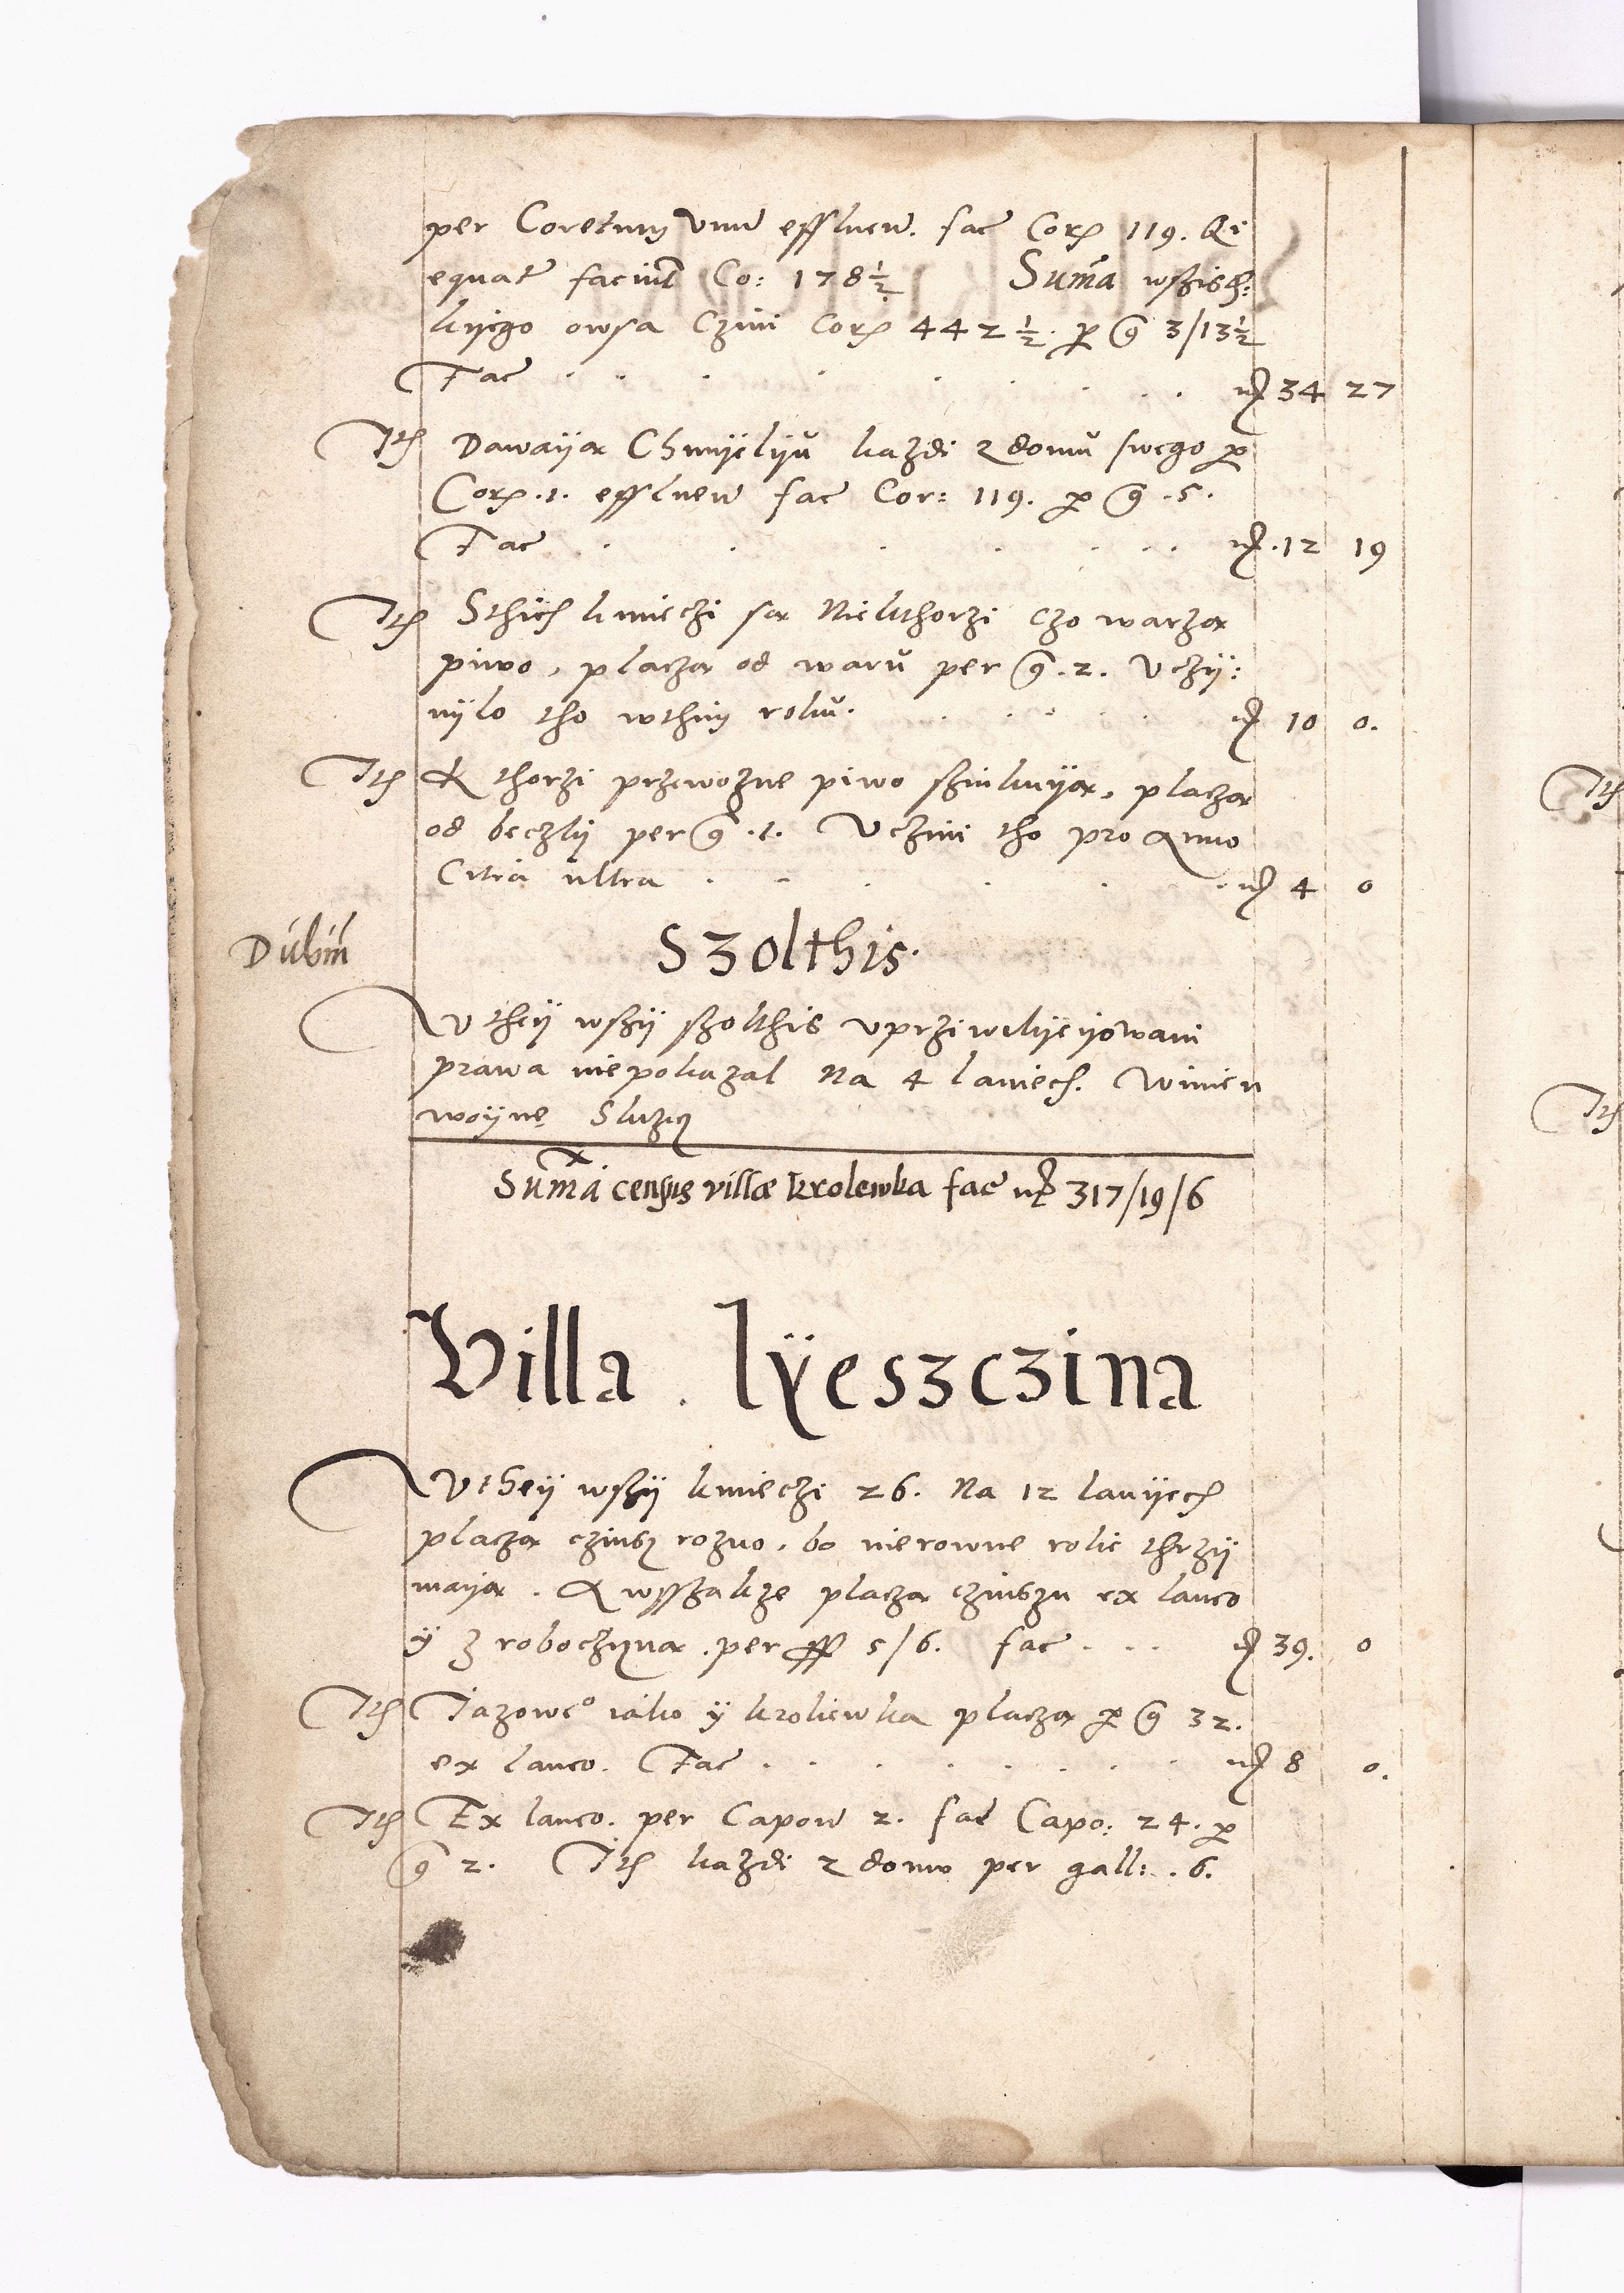 per Coretum unū effluen̄. fac̄ Corꝭ 119. Qi
equat̄ faciūt Co: 178 ½ Sum̄a wszisth:
kyego owsa Czini Corꝭ 442 ½. ꝑ g̃ 3/13½
Fac̄ . . . . . . . . . mꝭ 34 27
Itē Dawaya Chmyelyu kazdi z domu swego ꝑ
Corꝭ .1. effluen̄ fac̄ Cor: 119. ꝑ g̃ .5.
Fac̄ . . . . . . . mꝭ .12 19
Itē Sthich kmieczi sa Niekthorzi czo warza
piwo, placza od waru per g̃ .2. Uczy:
nylo tho wthim roku. . . . . . mꝭ 10 0.
Itē Kthorzi przewozne piwo szinkuya, placza
od beczky per g̃ .1. Uczini tho pro Anno
Citra ultra . . . . . . mꝭ 4 0
Dubiū
Szolthis.
Uthey wszy szolthis uprziwilyeyowani
prawa niepokazal Na 4 laniech. Winien
woynę Sluzicz
Sum̄a census villæ krolewka fac̄ mꝭ 317/19/6
Villa . lÿeszczina
Uthey wszy kmieczi 26. Na 12 lanyech
placza czinsz rozno, bo nierowne rolie thrzy
maya. A wsszakze placza czinszu ex laneo
y z roboczyzna .per 5/6. fac̄ . . . mꝭ 39. 0
Itē Jazowe° iako y kroliewka placza ꝑ g̃ 32.
ex laneo. Fac̄ . . . . . . . mꝭ 8 0.
Itē Ex laneo. per Capon̄ 2. fac̄ Capo: 24. ꝑ
g̃ 2. Itē kazdi z domu per gall: .6.